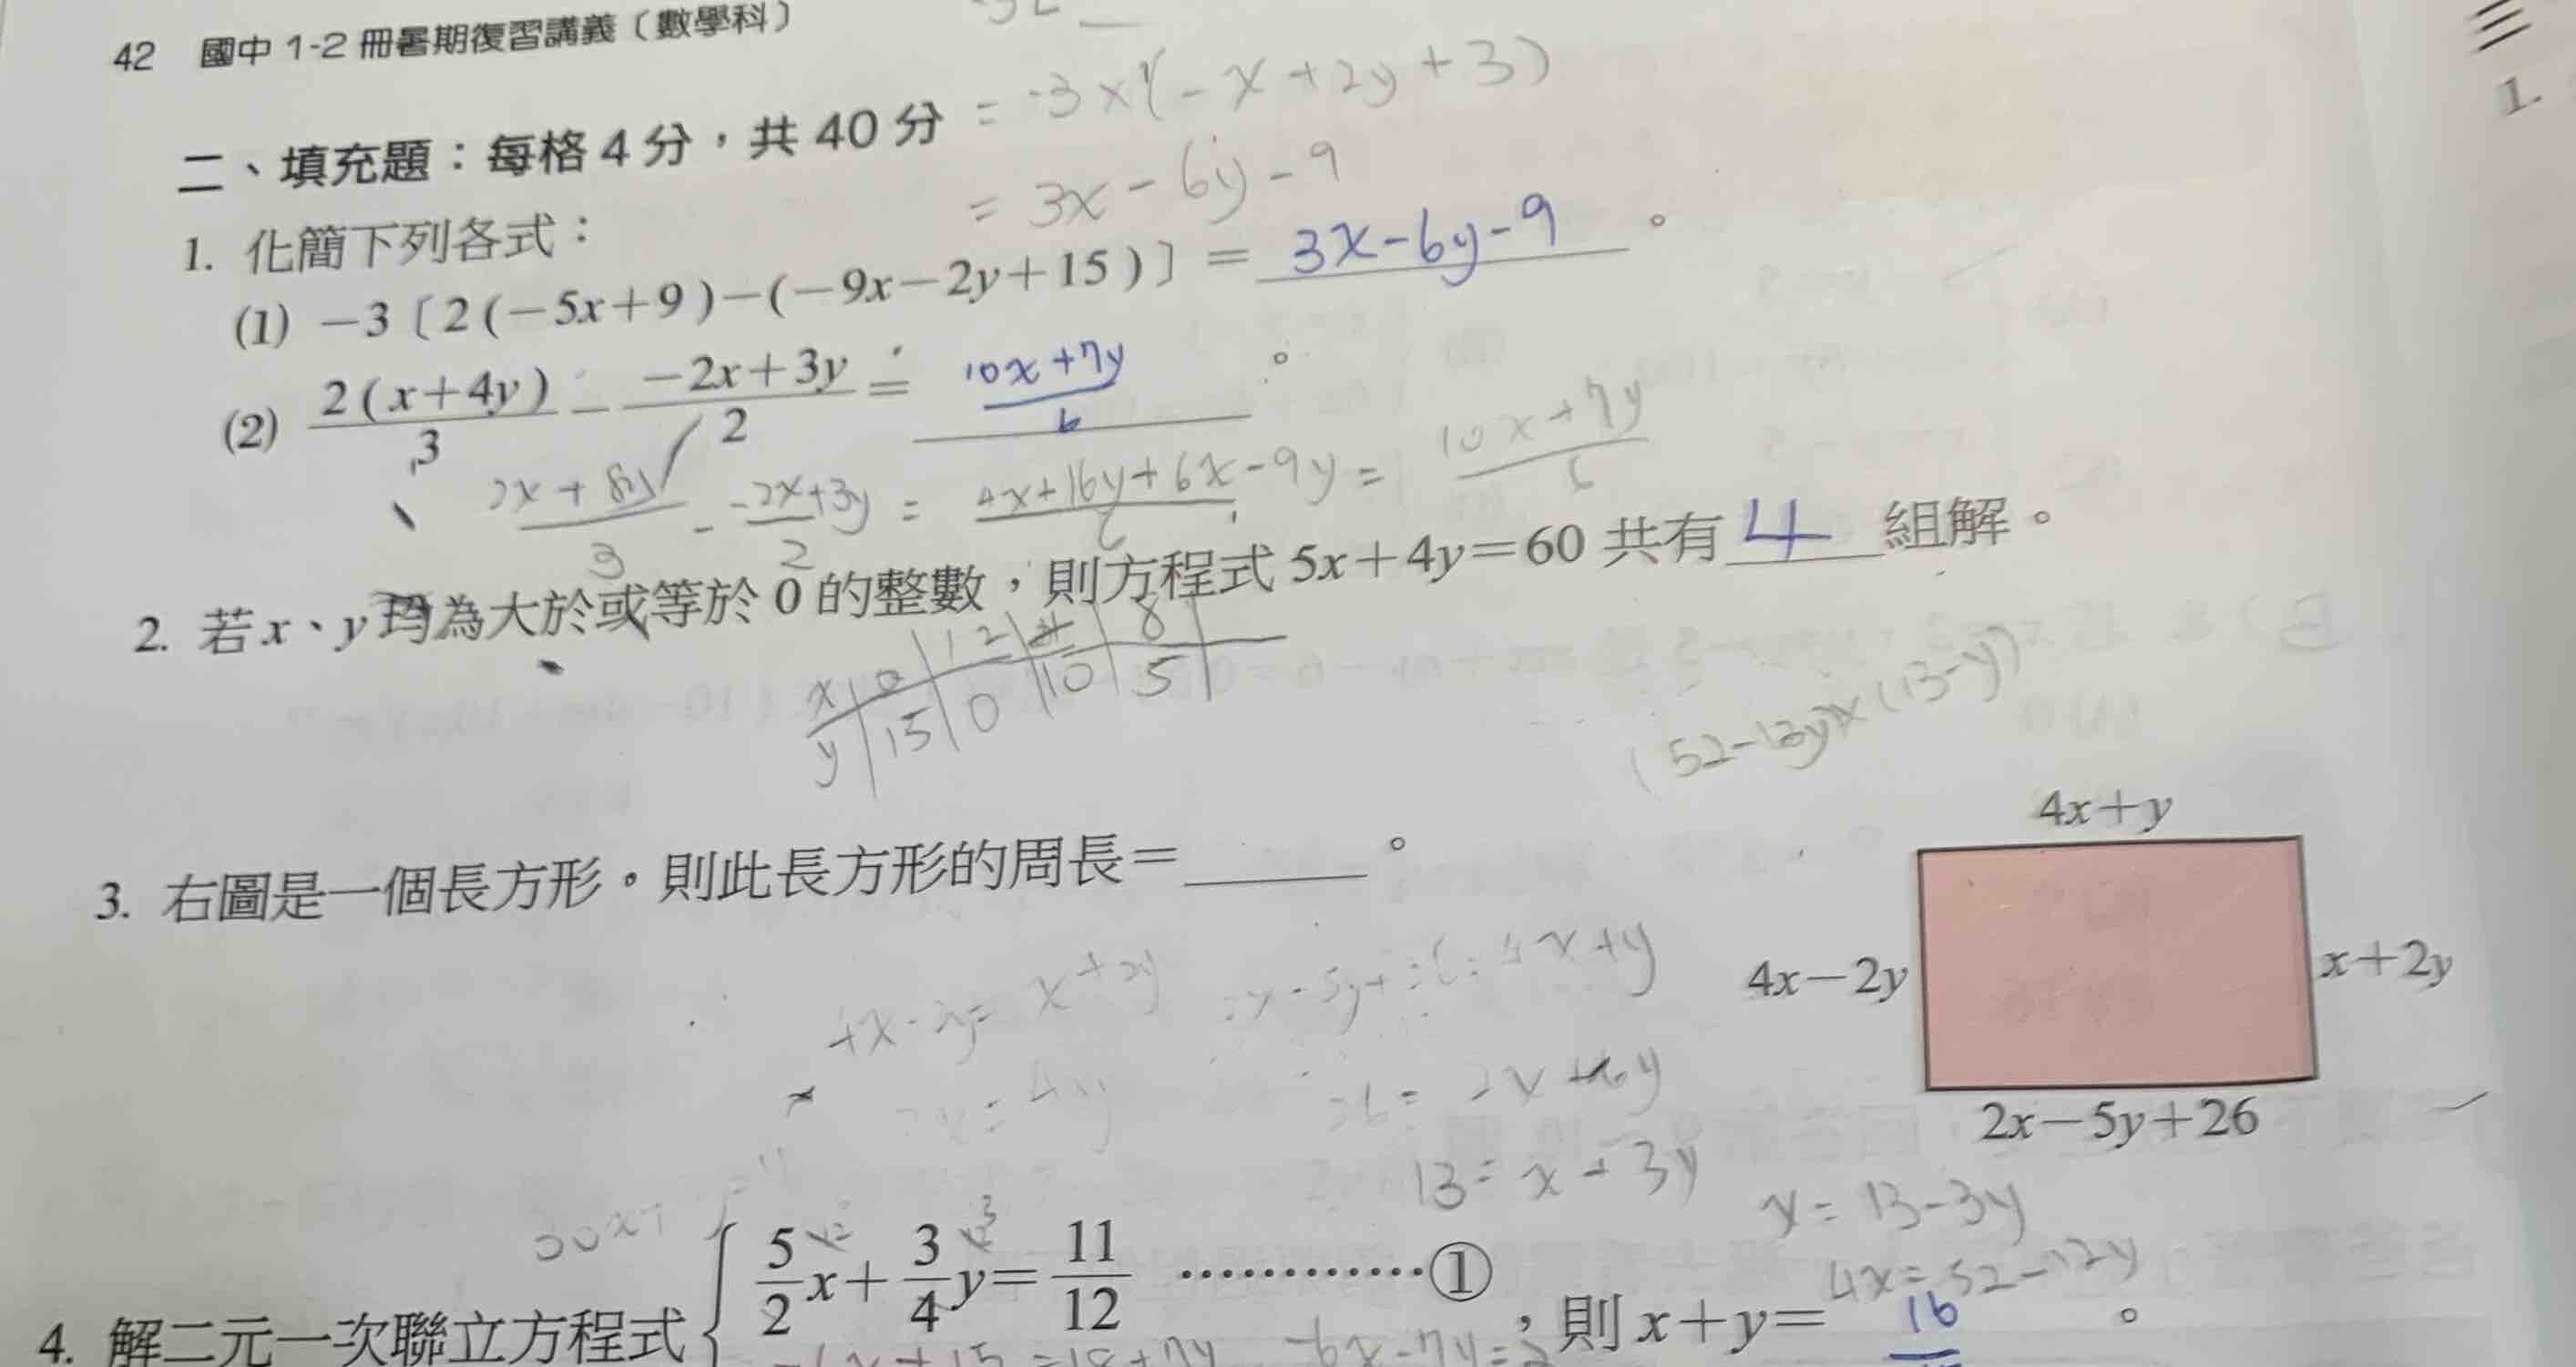 42 國中 1-2 冊暑期復習講義（數學科）
= -3×(-x+2y+3)
二、填充題：每格 4 分，共 40 分
= 3x-6y-9
1. 化簡下列各式：
(1) －3〔2(－5x＋9)－(－9x－2y＋15)〕＝ 3x-6y-9 。
(2) 2(x＋4y)/3 － －2x＋3y/2 ＝ 10x+7y/6 。
2x+8y/3 - -2x+3y/2 = 4x+16y+6x-9y/6 = 10x+7y/6
2. 若 x、y 均為大於或等於 0 的整數，則方程式 5x＋4y＝60 共有 4 組解。
x 0 12 4 8
y 15 0 10 5
×(13-y)
4x＋y
3. 右圖是一個長方形。則此長方形的周長＝ 。
4x－2y
x＋2y
4x-2y= x+2y
=4x+y
2x－5y＋26
13= x+3y
x= 13-3y
4x=52-12y
4. 解二元一次聯立方程式 5/2 x＋ 3/4 y＝ 11/12 …………① ，則 x＋y＝ 16 。